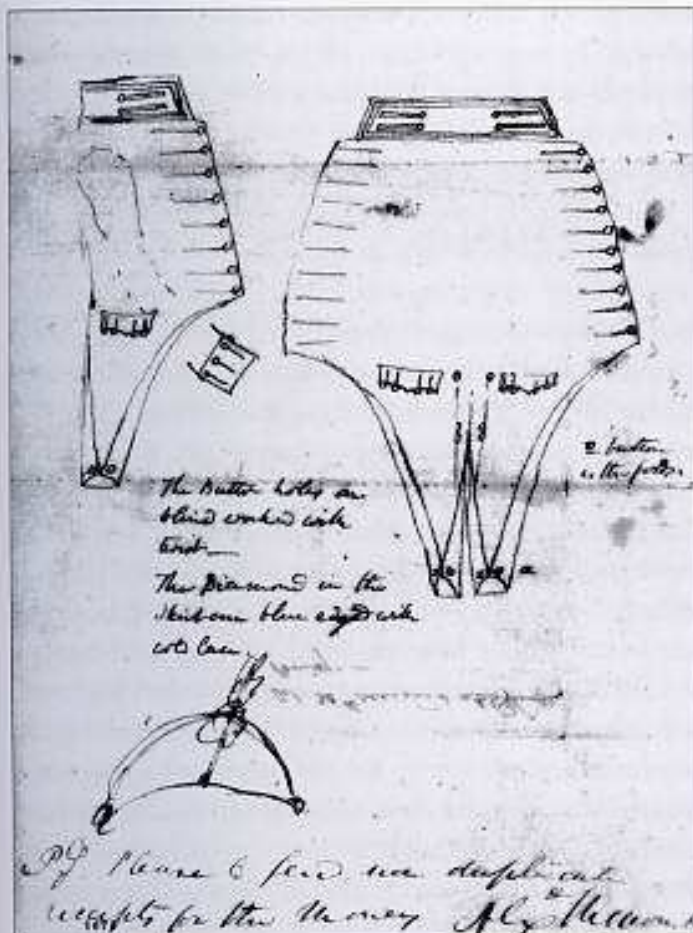 2 button
in the folds
The Button holes are
blind worked with
twist
The Diamond in the
skirt are blue edged with
cold lace
PS Please to send me duplicate
receipts for the Money Alex<sup>r</sup>